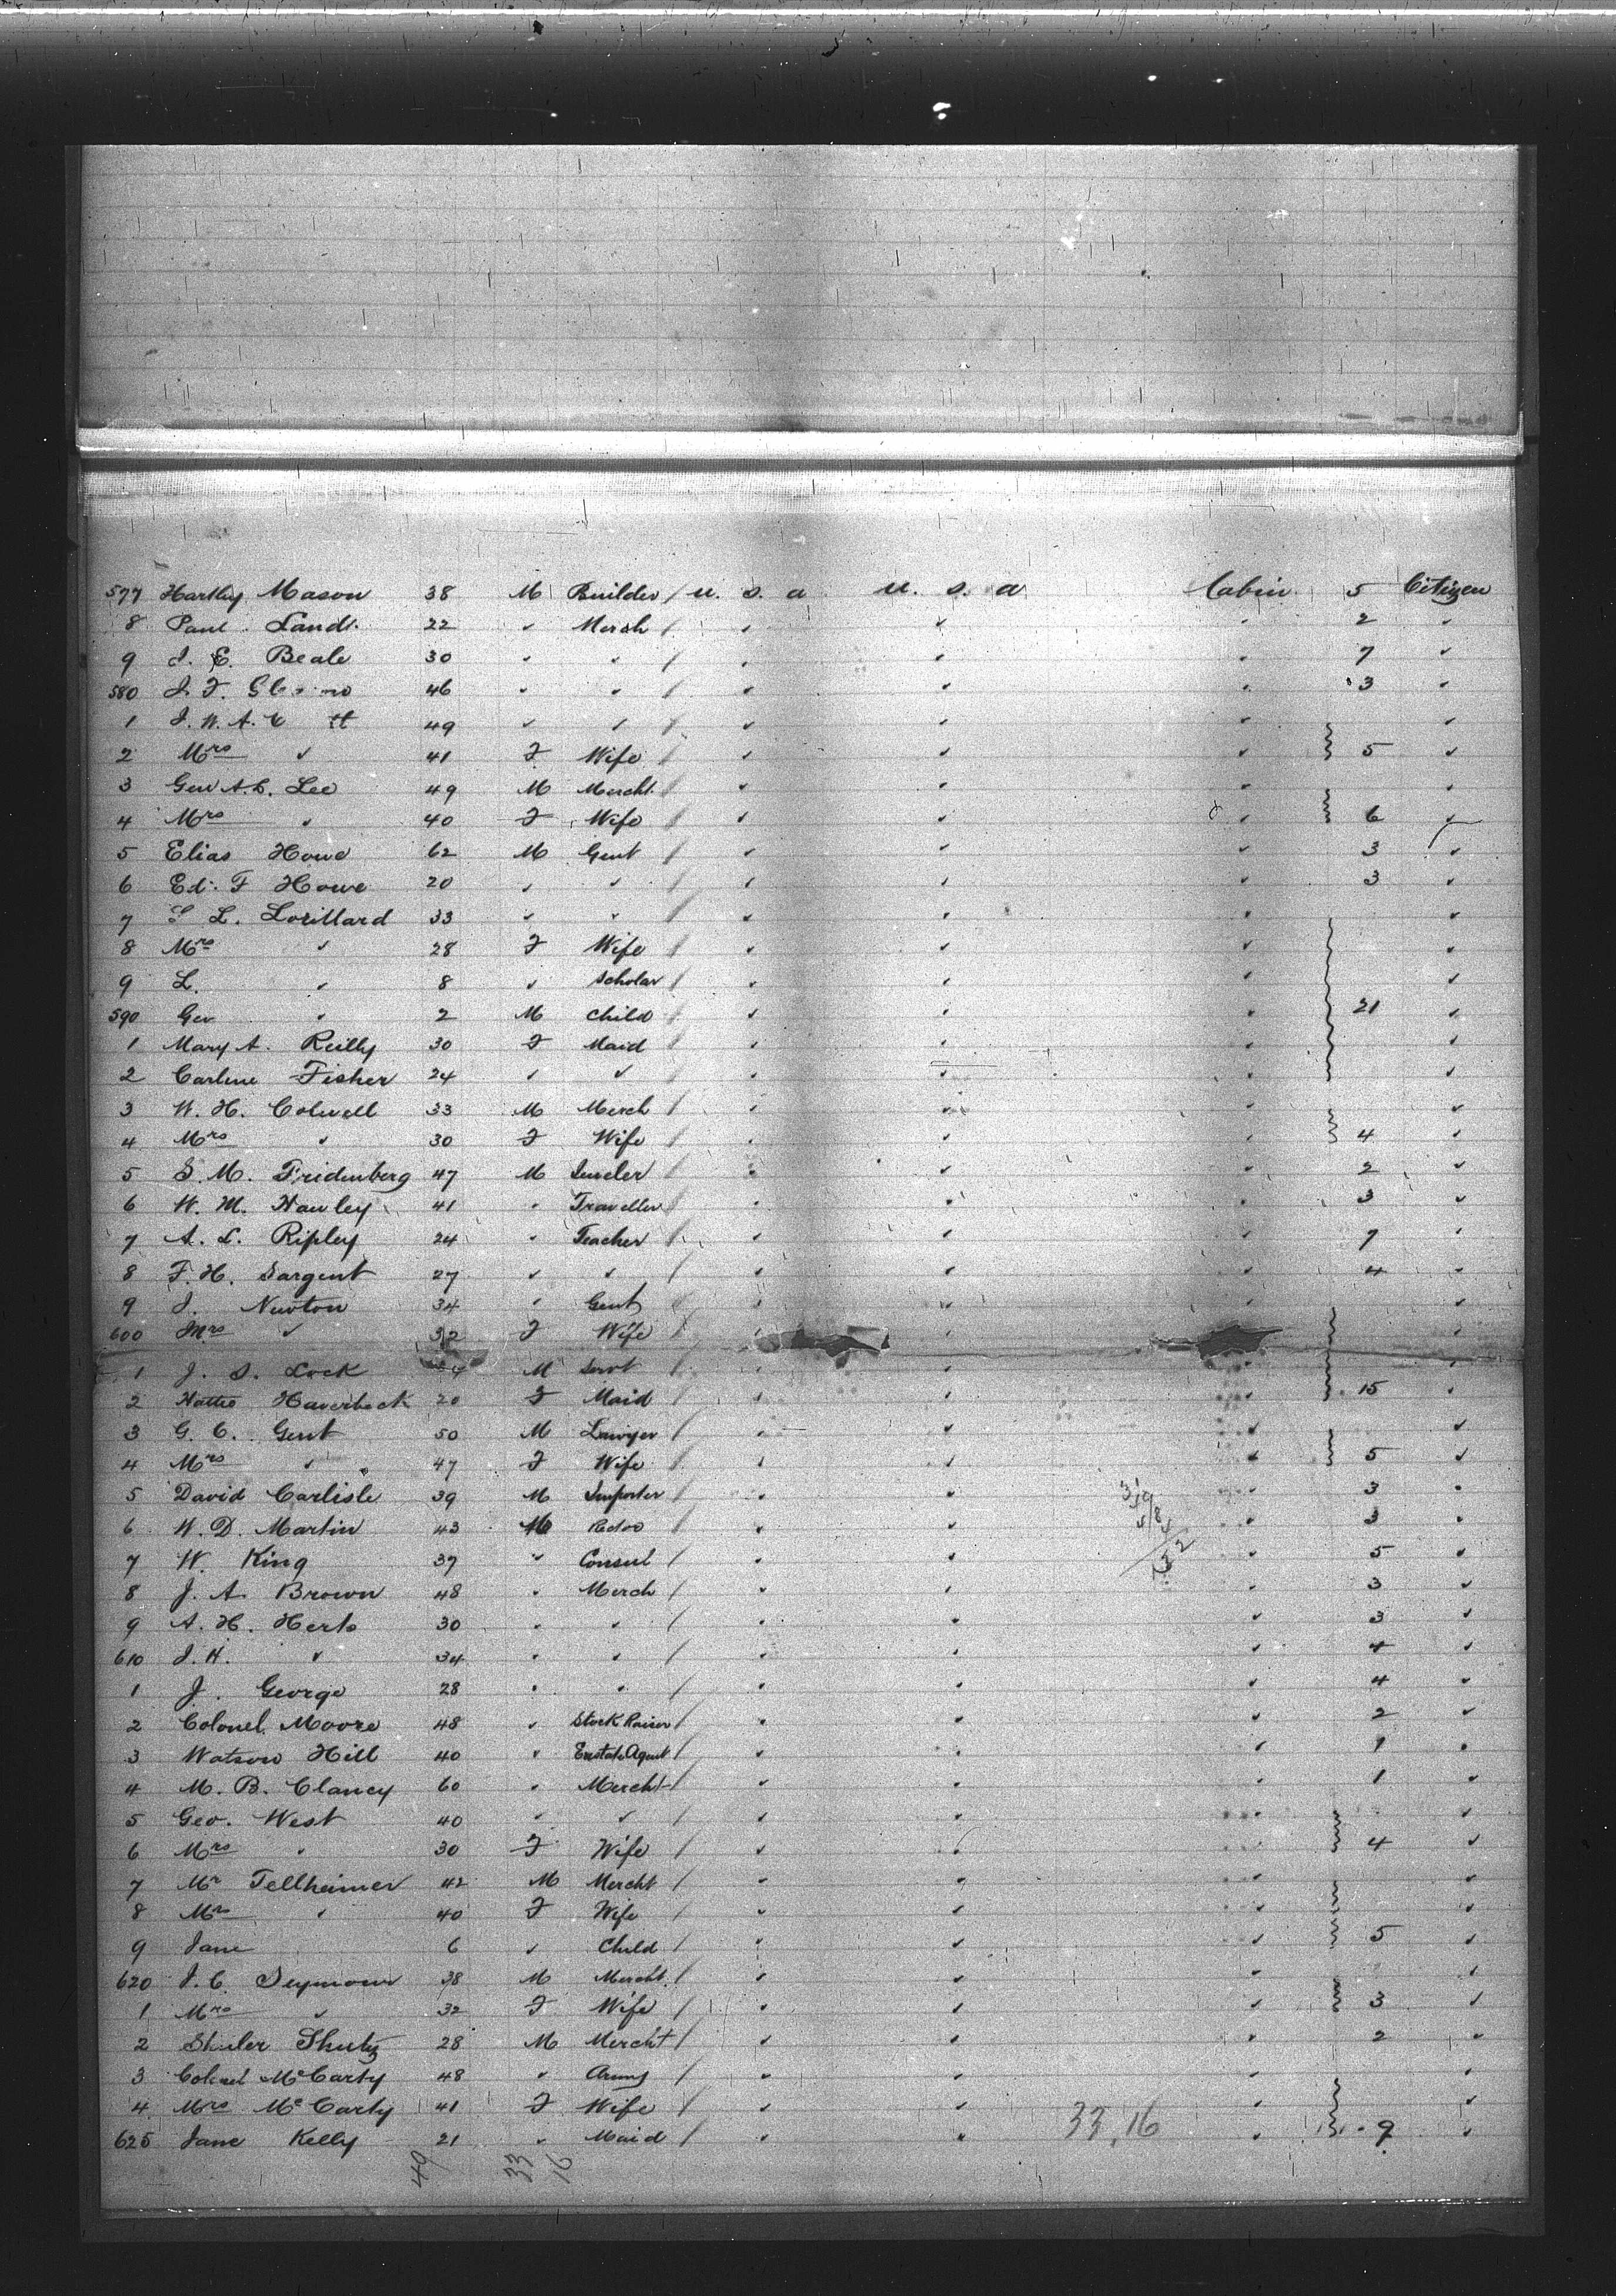 577 Hartley Mason 38 M Builder / U. S. A U. S. A Cabin 5 Citizen
8 Paul Landt. 22 " Merch / " " " 2 "
9 J. E. Beale 30 " " / " " " 7 "
580 J. F. 46 " " / " " " 3 "
1 J. W. A. 49 " " / " " " "
2 Mrs " 41 F Wife / " " " 5 "
3 Gen A. L. Lee 49 M Mercht / " " " "
4 Mrs " 40 F Wife / " " " 6 "
5 Elias Howe 62 M Gent / " " " 3 "
6 Ed. F Howe 20 " " / " " " 3 "
7 L. Lorillard 33 " " / " " " "
8 Mrs " 28 F Wife / " " " "
9 L. " 8 " Scholar / " " " "
590 Geo " 2 M Child / " " " 21 "
1 Mary A. Reilly 30 F Maid / " " " "
2 Carline Fisher 24 " " / " " " "
3 W. H. Colwell 33 M Merch / " " " "
4 Mrs " 30 F Wife / " " " 4 "
5 S. M. Fridenberg 47 M Jeweler / " " " 2 "
6 W. M. Hawley 41 " Traveller / " " " 3 "
7 A. L. Ripley 24 " Teacher / " " " 7 "
8 F. H. Sargent 27 " " / " " " 4 "
9 J. Newton 34 " Gent / " " " "
600 Mrs " 32 F Wife / " " "
1 J. S. Lock M Servt / " " " "
2 Hattie Haverbeck 20 F Maid / " " " 15 "
3 G. C. Gent 50 M Lawyer / " " " "
4 Mrs " 47 F Wife / " " " 5 "
5 David Carlisle 39 M Importer / " " " 3 "
6 W. D. Martin 43 M / " " " 3 "
7 W. King 37 " Consul / " " " 5 "
8 J. A. Brown 48 " Merch / " " " 3 "
9 A. H. Herts 30 " " / " " " 3 "
610 J. H. " 34 " " / " " " 4 "
1 J. George 28 " " / " " " 4 "
2 Colonel Moore 48 " Stock Raiser / " " " 2 "
3 Watson Hill 40 " Estate Agent / " " " 1 "
4 M. B. Clancy 60 " Mercht / " " " 1 "
5 Geo. West 40 " " / " " " "
6 Mrs " 30 F Wife / " " " 4 "
7 Mr Tellheimer 42 M Mercht / " " " "
8 Mrs " 40 F Wife / " " " "
9 Jane 6 " Child / " " " 5 "
620 J. C. Seymour 38 M Mercht / " " " "
1 Mrs " 32 F Wife / " " " 3 "
2 Shuler Shutz 28 M Mercht / " " " 2 "
3 Colonel McCarty 48 " Army / " " "
4 Mrs McCarty 41 F Wife / " " " "
625 Jane Kelly 21 " Maid / " " 33,16 " 9 "
49 33 16